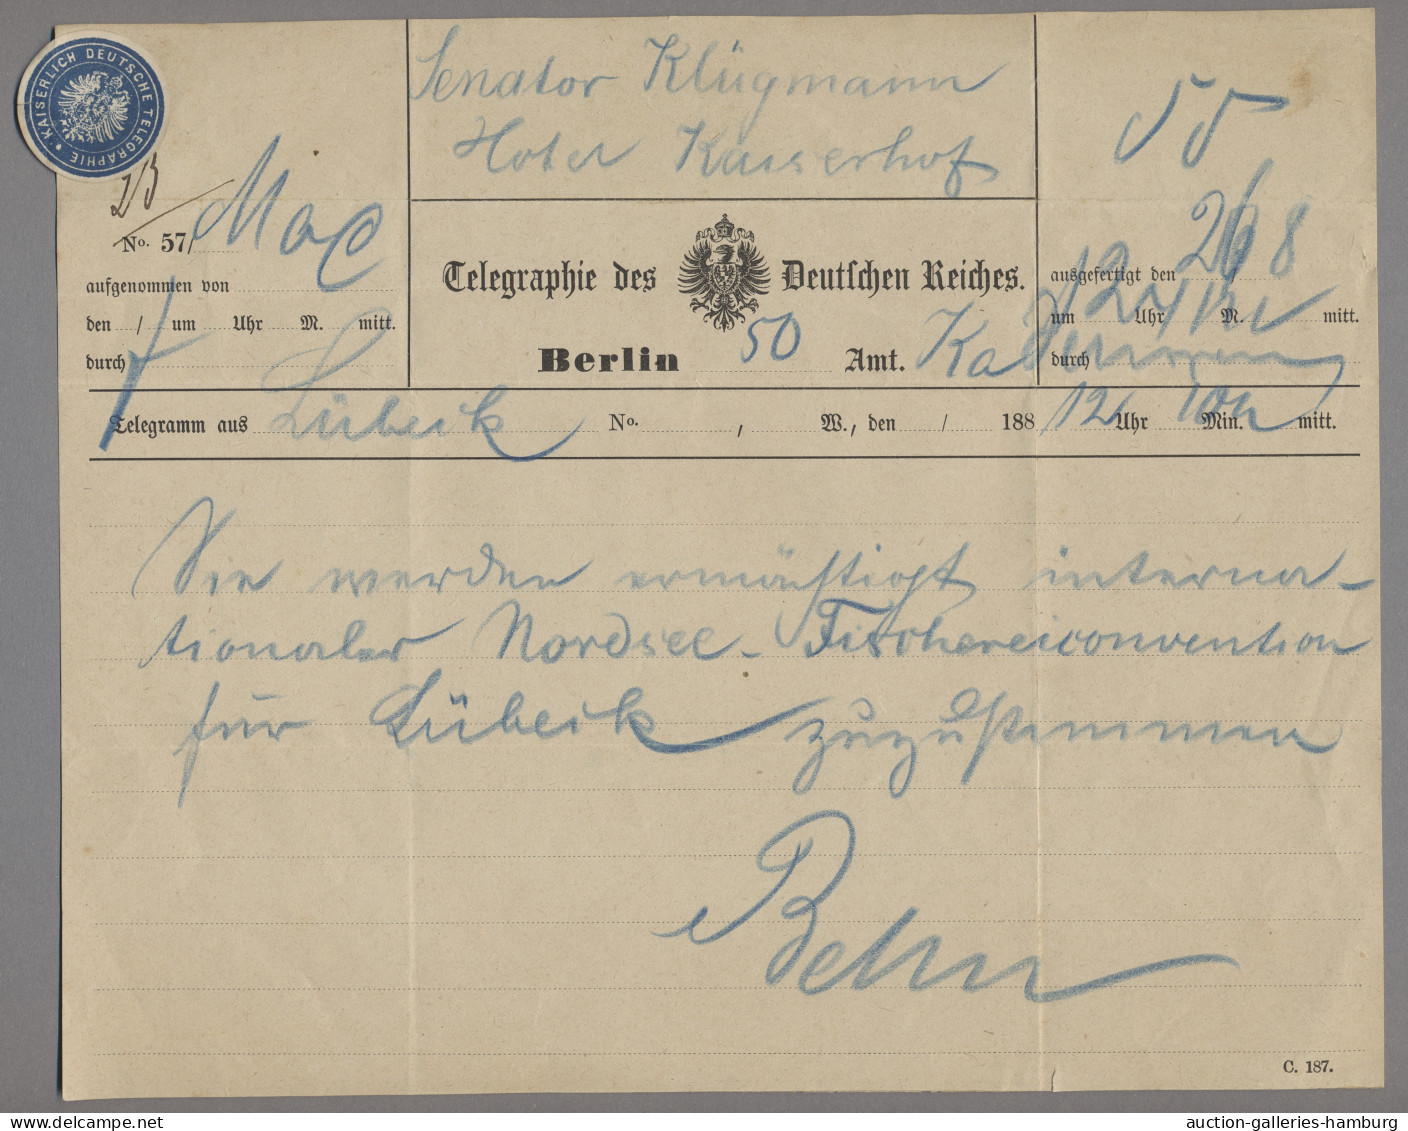 KAISERLICH DEUTSCHE TELEGRAPHIE
Senator Klügmann
Hotel Kaiserhof
55
23
No. 57/ Max
aufgenommen von
den / um Uhr M. mitt.
durch
Telegraphie des Deutschen Reiches.
Berlin 50 Amt.
ausgefertigt den 26/8
um 12 Uhr M. mitt.
durch
Telegramm aus Lübeck No. , W., den / 188 12 Uhr Min. mitt.
Sie werden ermächtigt interna-
tionaler Nordsee-Fischereiconvention
für Lübeck zuzustimmen
Behn
C. 187.
auction-galleries-hamburg